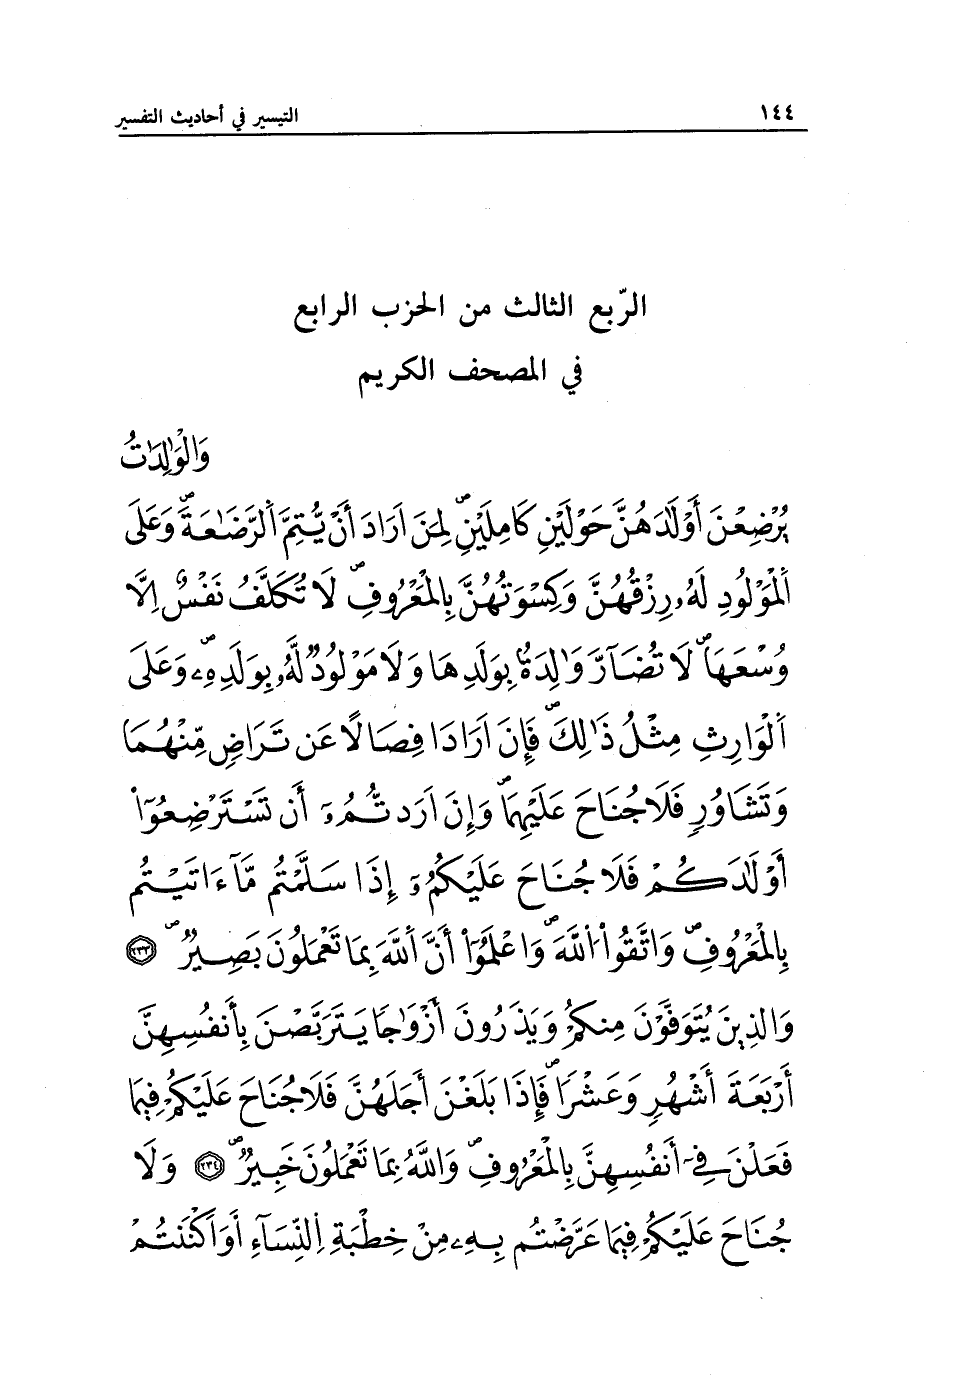 ١٤٤
التيسير في أحاديث التفسير
الرّبع الثالث من الحزب الرابع
في المصحف الكريم
وَالْوَٰلِدَٰتُ
يُرْضِعْنَ أَوْلَٰدَهُنَّ حَوْلَيْنِ كَامِلَيْنِۖ لِمَنَ اَرَادَ أَنْ يُّتِمَّ اَ۬لرَّضَٰعَةَۖ وَعَلَى
اَ۬لْمَوْلُودِ لَهُۥ رِزْقُهُنَّ وَكِسْوَتُهُنَّ بِالْمَعْرُوفِۖ لَا تُكَلَّفُ نَفْسٌ اِلَّا
وُسْعَهَاۖ لَا تُضَآرَّ وَٰلِدَةُۢ بِوَلَدِهَا وَلَا مَوْلُودٞ لَّهُۥ بِوَلَدِهِۦۖ وَعَلَى
اَ۬لْوَارِثِ مِثْلُ ذَٰلِكَۖ فَإِنَ اَرَادَا فِصَالًا عَن تَرَاضٖ مِّنْهُمَا
وَتَشَاوُرٖ فَلَا جُنَاحَ عَلَيْهِمَاۖ وَإِنَ اَرَدتُّمُۥٓ أَن تَسْتَرْضِعُوٓاْ
أَوْلَٰدَكُمْ فَلَا جُنَاحَ عَلَيْكُمُۥٓ إِذَا سَلَّمْتُم مَّآ ءَاتَيْتُم
بِالْمَعْرُوفِۖ وَاتَّقُواْ اُ۬للَّهَۖ وَاعْلَمُوٓاْ أَنَّ اَ۬للَّهَ بِمَا تَعْمَلُونَ بَصِيرٞۖ ٢٣٣
وَالذِينَ يُتَوَفَّوْنَ مِنكُمْ وَيَذَرُونَ أَزْوَٰجًا يَتَرَبَّصْنَ بِأَنفُسِهِنَّ
أَرْبَعَةَ أَشْهُرٖ وَعَشْرًاۖ فَإِذَا بَلَغْنَ أَجَلَهُنَّ فَلَا جُنَاحَ عَلَيْكُمْ فِيمَا
فَعَلْنَ فِےٓ أَنفُسِهِنَّ بِالْمَعْرُوفِۖ وَاللَّهُ بِمَا تَعْمَلُونَ خَبِيرٞۖ ٢٣٤ وَلَا
جُنَاحَ عَلَيْكُمْ فِيمَا عَرَّضْتُم بِهِۦ مِنْ خِطْبَةِ اِ۬لنِّسَآءِ أَوَ اَكْنَنتُمْ